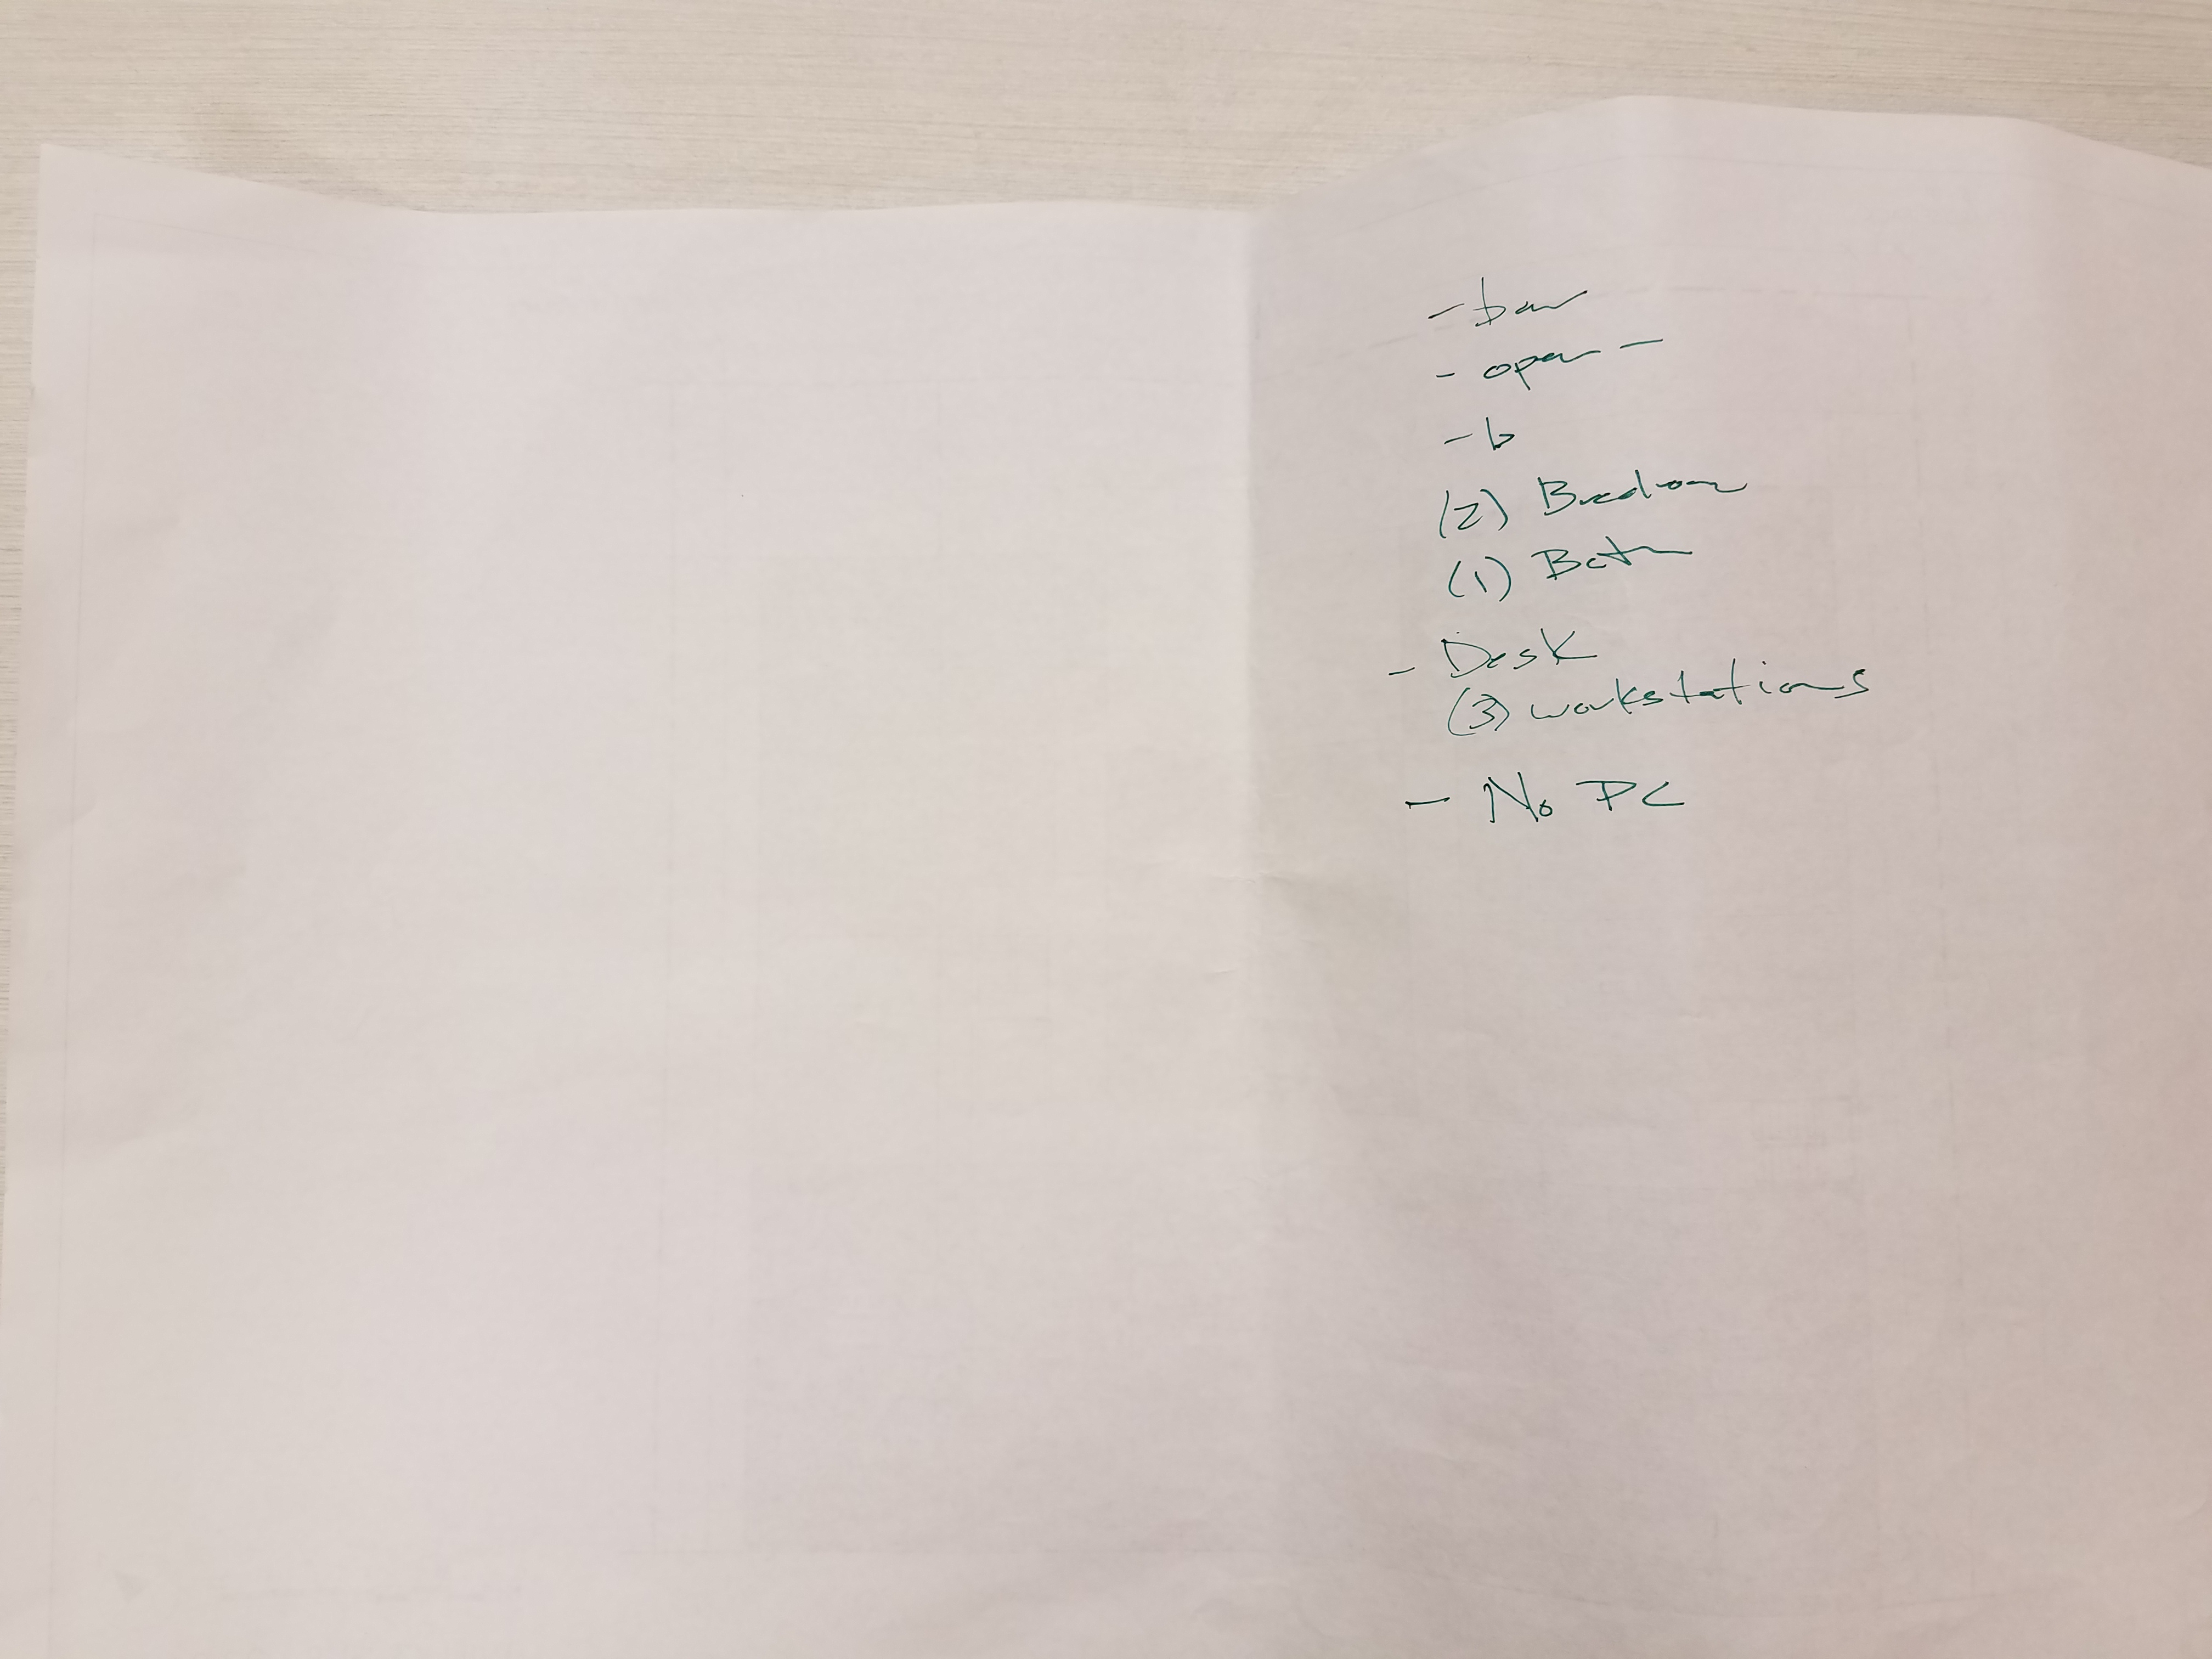 - bar
- open -
- b
(2) Bedroom
(1) Bath
- Desk
(3) workstations
- No PC